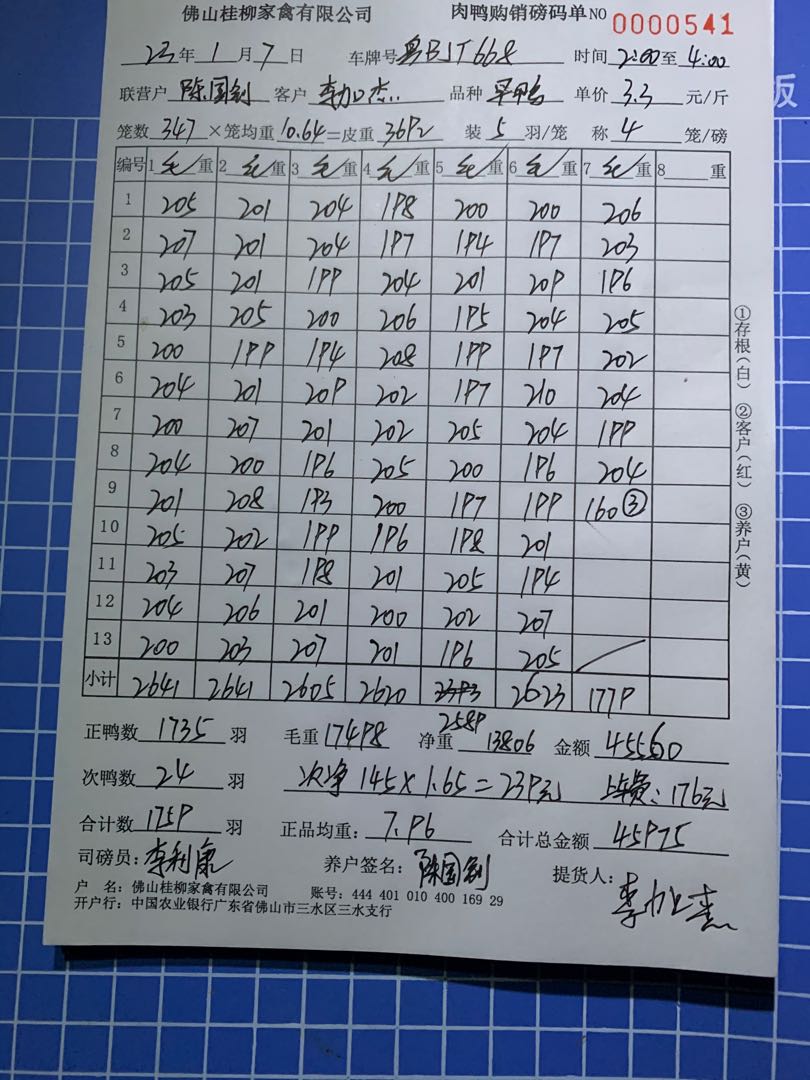 佛山桂柳家禽有限公司 肉鸭购销磅码单 NO 0000541
23年1月7日 车牌号 粤BJT668 时间 2:00至4:00
联营户 陈国钊 客户 李加杰 品种 旱鸭 单价 3.3 元/斤
笼数 347 ×笼均重 10.64 =皮重 3692 装 5 羽/笼 称 4 笼/磅
编号 1 毛重 2 毛重 3 毛重 4 毛重 5 毛重 6 毛重 7 毛重 8 重
1 205 201 204 198 200 200 206
2 207 201 204 197 194 197 203
3 205 201 199 204 201 209 196
4 203 205 200 206 195 204 205
5 200 199 194 208 199 197 202
6 204 201 209 202 197 210 204
7 200 207 201 202 205 204 199
8 204 200 196 205 200 196 204
9 201 208 193 200 197 199 160③
10 205 202 199 196 198 201
11 203 207 198 201 205 194
12 204 206 201 200 202 207
13 200 203 207 201 196 205
小计 2641 2641 2605 2620 2589 2623 1779
正鸭数 1735 羽 毛重 17498 净重 13806 金额 45560
次鸭数 24 羽 次净 145×1.65=239元 上车费:176元
合计数 1759 羽 正品均重: 7.96 合计总金额 45975
司磅员: 李利康 养户签名: 陈国钊 提货人: 李加杰
户 名: 佛山桂柳家禽有限公司 账号: 444 401 010 400 169 29
开户行: 中国农业银行广东省佛山市三水区三水支行
①存根(白) ②客户(红) ③养户(黄)
板